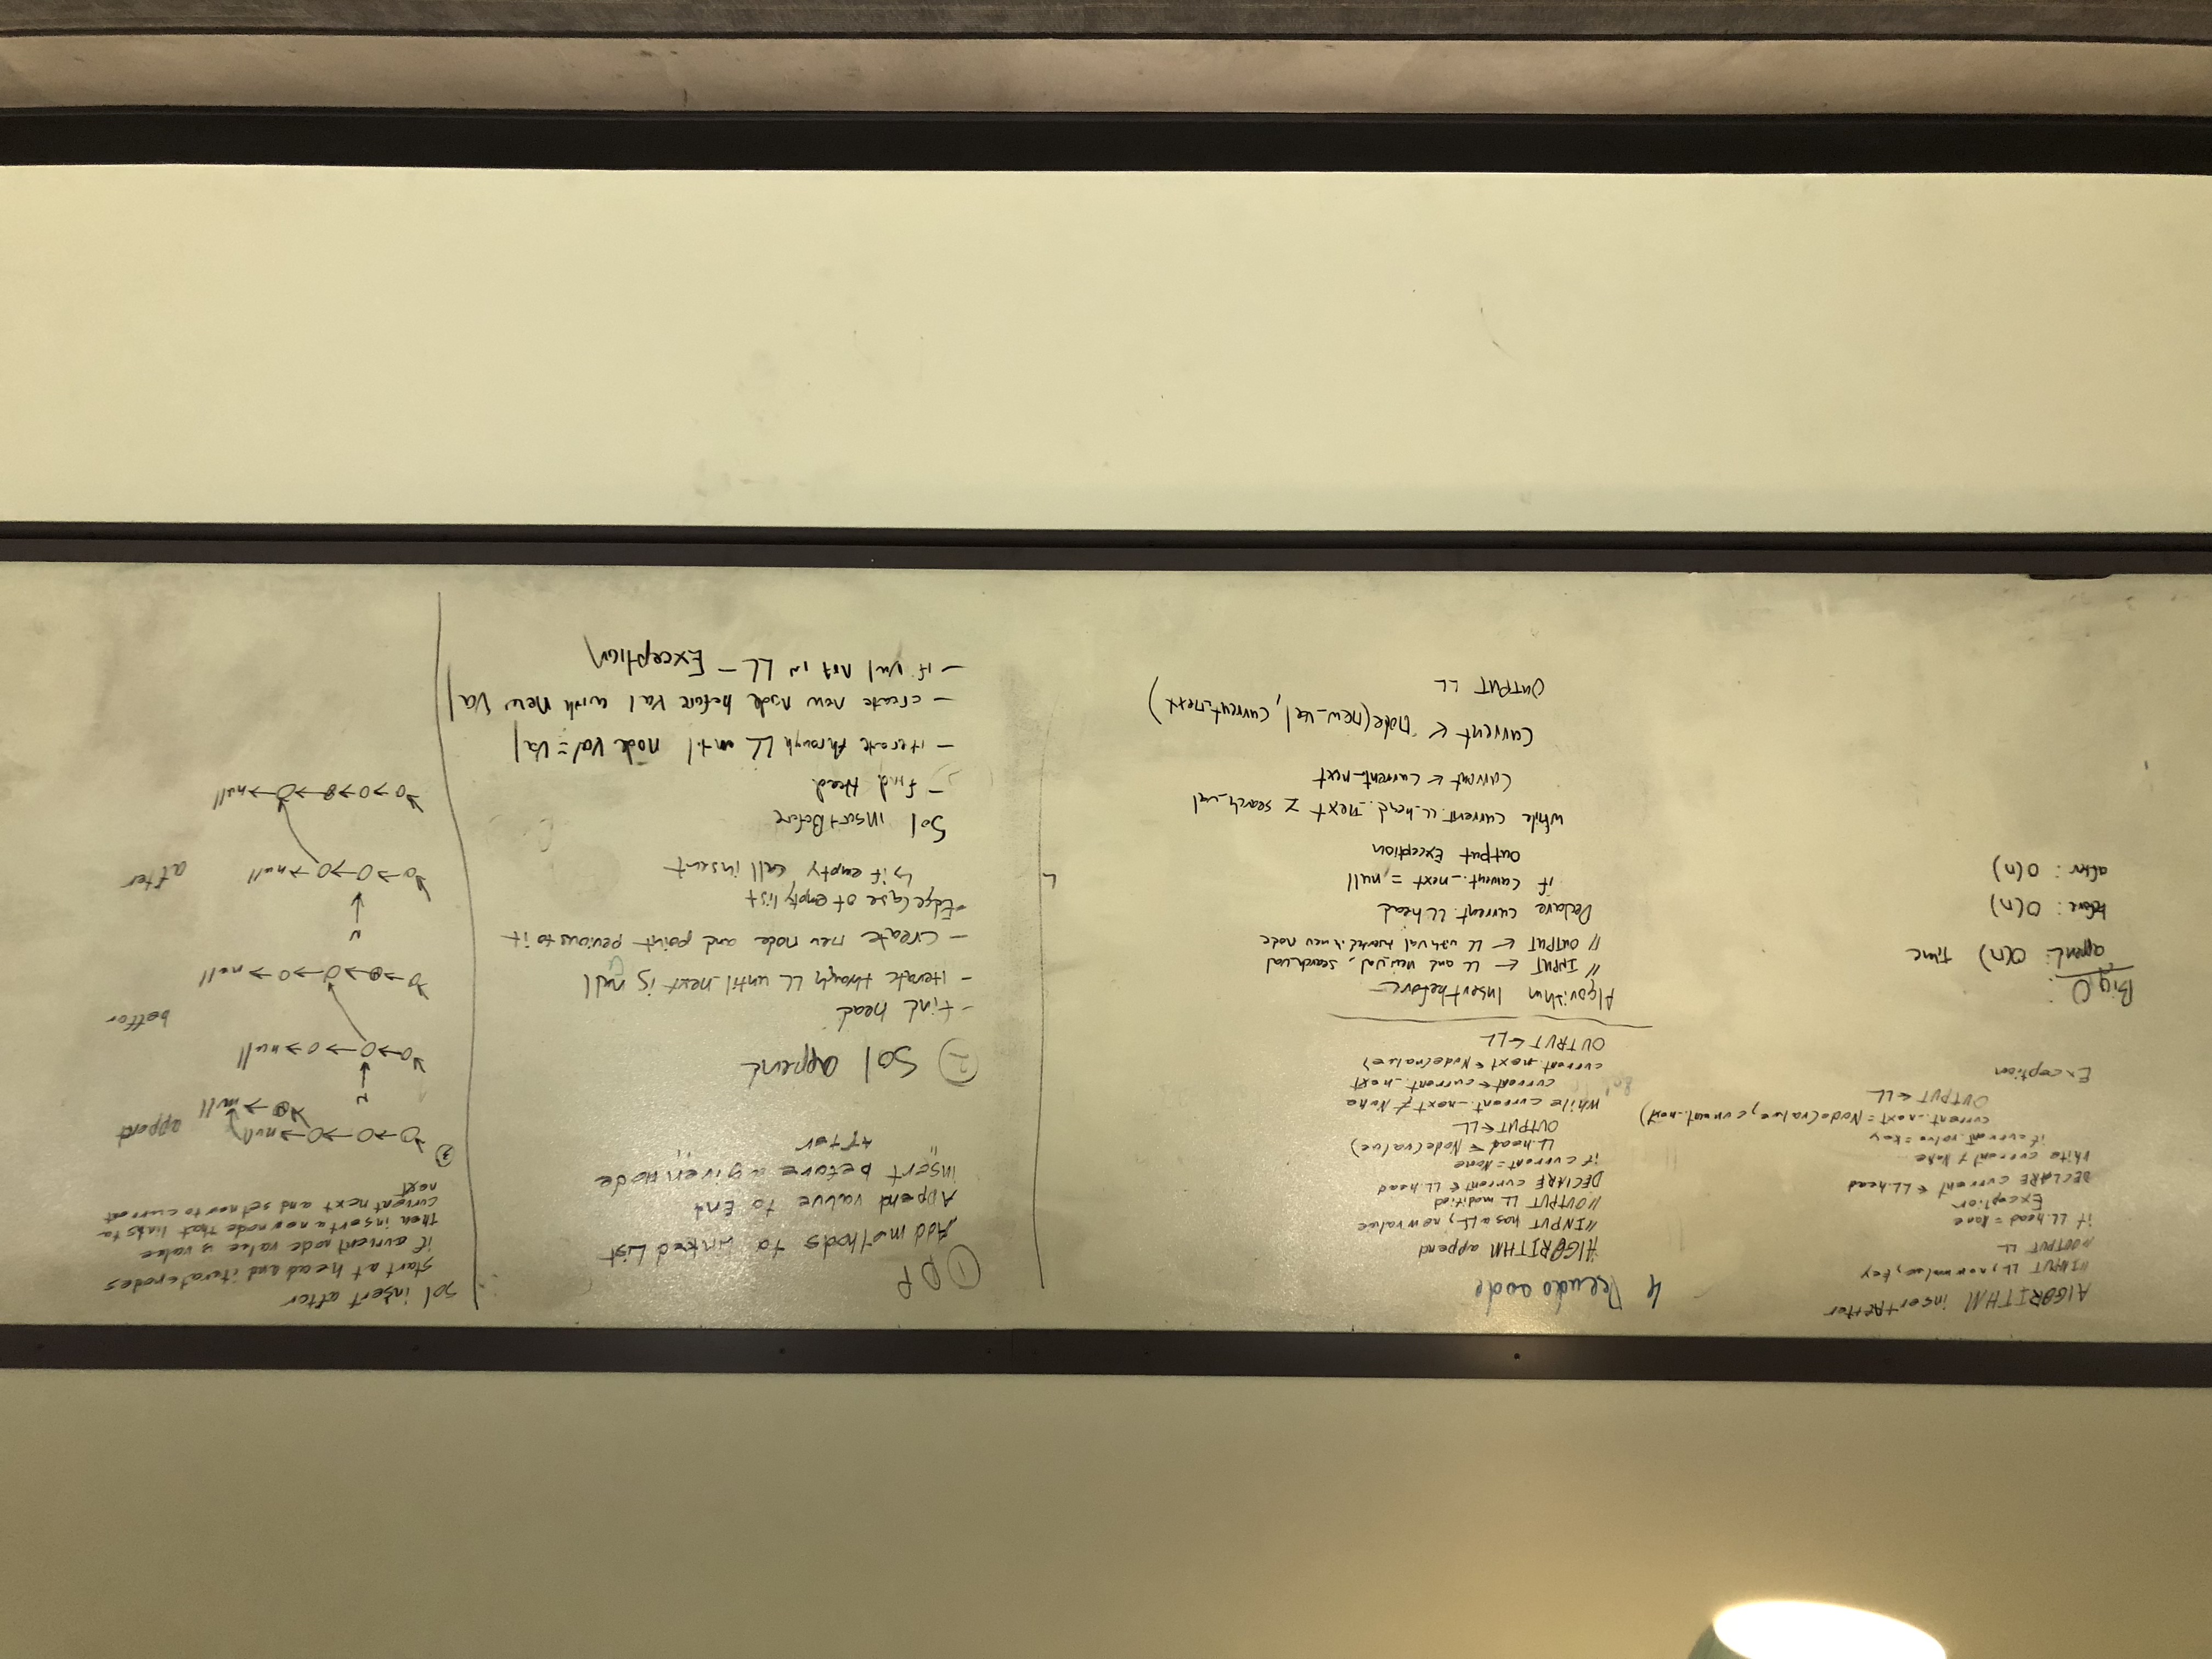 ALGORITHM insertAfter
// INPUT LL, new value, key
// OUTPUT LL
if LL.head = None
Exception
DECLARE current ← LL.head
while current ≠ None
if current.value = key
current._next = Node(value, current._next)
OUTPUT ← LL
Exception
Big O:
append: O(n) Time
before: O(n)
after: O(n)
4 Pseudo code
ALGORITHM append
// INPUT has a LL, new value
// OUTPUT LL modified
DECLARE current ← LL.head
if current = None
LL.head ← Node(value)
OUTPUT ← LL
while current._next ≠ None
current ← current._next
current._next ← Node(value)
OUTPUT ← LL
Algorithm Insertbefore
// INPUT ← LL and new_val, search_val
// OUTPUT ← LL with val inserted in new node
Declare current.LL.head
if current._next = null
output Exception
while current.LL.head._next ≠ search_val
Current ← current_next
Current ← node(new_val, current_next)
OUTPUT LL
① DP
Add methods to Linked List
Append value to End
insert before a given node
" After "
② Sol append
- find head
- iterate through LL until _next is null
- create new node and point pevious to it
- Edge Case of empty list
↳ if empty call insert
Sol insertBefore
- find Head
- iterate through LL until node val = val
- create new node before val with new val
- if val not in LL - Exception
Sol insert after
start at head and iterate nodes
if current node value is value
then insert a new node that links to
current next and set new to current
next
③ O→O→O→null append
→null
N
o→O→o→null
before
o→o→o→o→null
N
o→O→O→null after
o→o→o→O→null